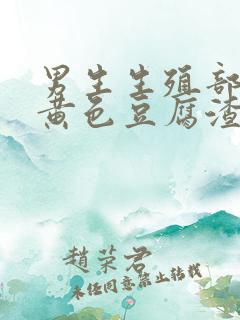 男生生殖部
黄色豆腐渣
趙荣君
未经同意禁止转载